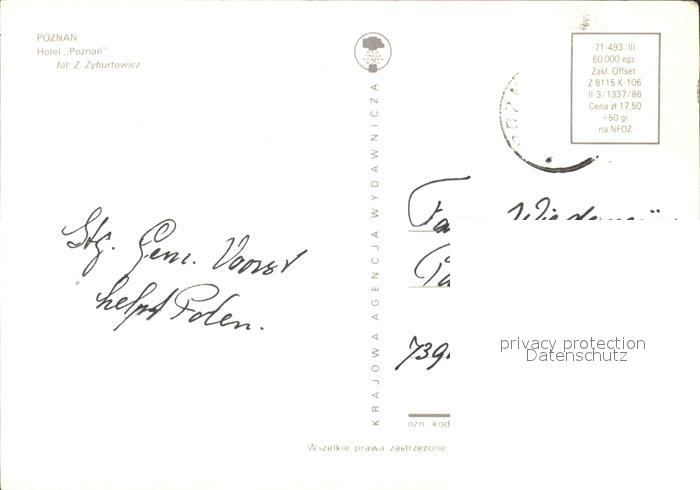 POZNAŃ
Hotel „Poznań"
fot. Z. Żyburtowicz
71-493/III
60 000 egz.
Zakł. Offset
Z 8115 K-106
II-3/1337/86
Cena zł 17,50
+50 gr
na NFOZ
KRAJOWA AGENCJA WYDAWNICZA
Stg. Gem. Voorst
helpt Polen.
Fa
739
privacy protection
Datenschutz
ozn kod
Wszelkie prawa zastrzeżone